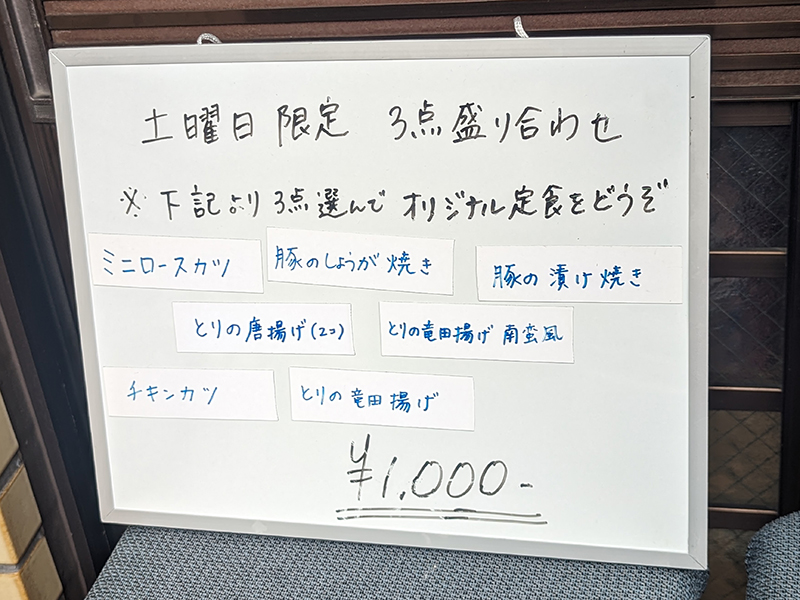 土曜日限定 3点盛り合わせ
※下記より3点選んでオリジナル定食をどうぞ
ミニロースカツ 豚のしょうが焼き 豚の漬け焼き
とりの唐揚げ(2コ) とりの竜田揚げ南蛮風
チキンカツ とりの竜田揚げ
¥1,000-